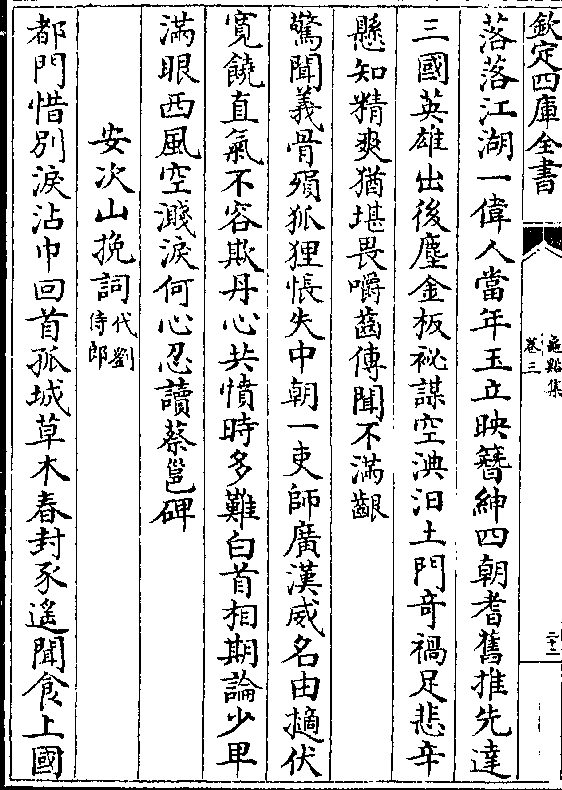 欽定四庫全書
龜谿集
卷三
二十二
落落江湖一偉人當年玉立映簪紳四朝耆舊推先達
三國英雄出後塵金板祕謀空淟汩土門竒禍足悲辛
懸知精爽猶堪畏嚼齒傳聞不滿齦
驚聞義骨殞狐狸悵失中朝一吏師廣漢威名由擿伏
寛饒直氣不容欺丹心共憤時多難白首相期論少卑
滿眼西風空濺淚何心忍讀蔡邕碑
安次山挽詞代劉侍郎
都門惜別淚沾巾回首孤城草木春封豕遙聞食上國